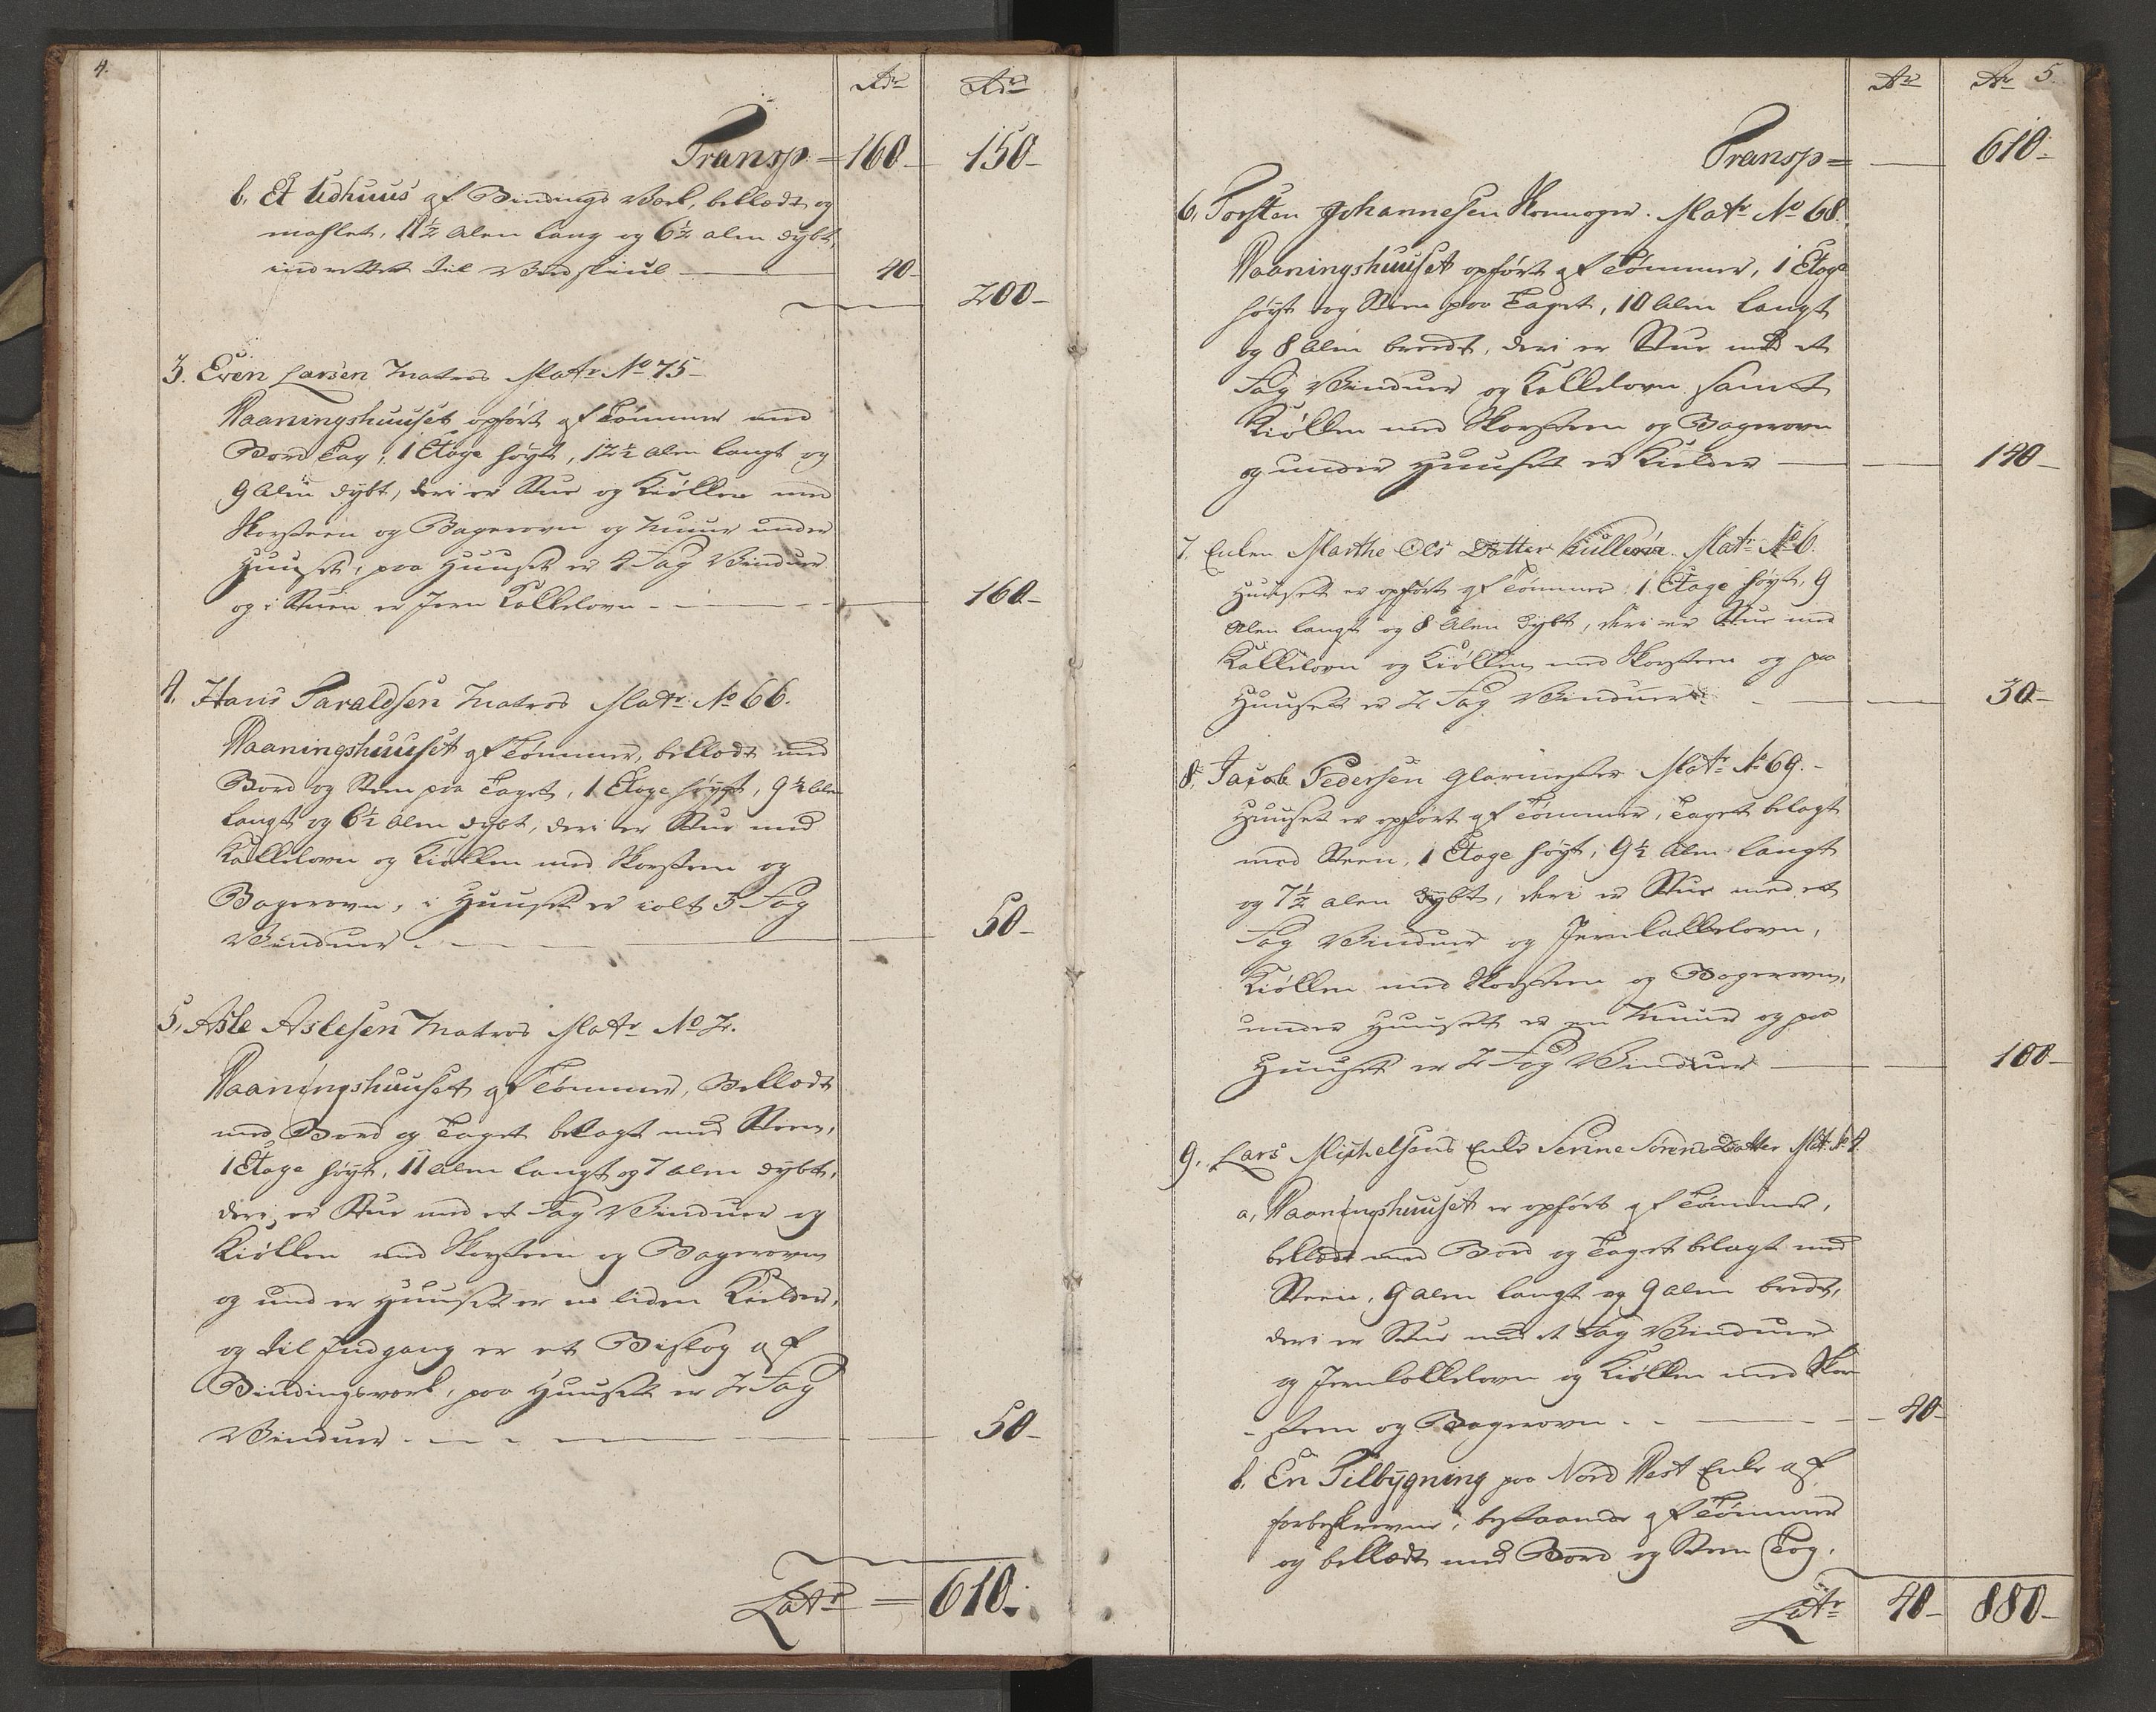 4.
Rdr Rdr
Transp. = 160 - 150 -
b, Et Udhuus af Bindings Værk, beklædt og
mahlet, 11½ Alen lang og 6½ alen dybt,
indrettet til Vedskiul 40 -
200 -
3. Even Larsen Matros Matr No 75 -
Vaaningshuuset opført af Tømmer med
Bord Tag, 1 Etage høyt, 12½ alen langt og
9 Alen dybt, deri er Stue og Kiøkken med
Skorsteen og Bagerovn og Muur under
Huuset, paa Huuset er 4 Fag Vinduer
og i Stuen er Jern Kakkelovn 160 -
4. Hans Taraldsen Matros Matr No 66.
Vaaningshuuset af Tømmer, beklædt med
Bord og Steen paa Taget, 1 Etage høyt, 9½ Alen
langt og 6½ Alen dybt, deri er Stue med
Kakkelovn og Kiøkken med Skorsteen og
Bagerovn, i Huuset er ialt 3 Fag
Vinduer 50 -
5, Asle Aslesen Matros Matr No 2.
Vaaningshuuset af Tømmer, Beklædt
med Bord og Taget belagt med Steen,
1 Etage høyt, 11 Alen langt og 7 alen dybt,
deri er Stue med et Fag Vinduer og
Kiøkken med Skorsteen og Bagerovn
og under Huuset er en liden Kielder,
og til Indgang er et Bislog af
Bindingsværk, paa Huuset er 2 Fag
Vinduer 50 -
Latr = 610 -
5.
Rr Rr
Transp = 610 -
6, Torsten Johannesen Skomager. Matr No 68.
Vaaningshuuset opført af Tømmer, 1 Etage
høyt og Steen paa Taget, 10 Alen langt
og 8 Alen bredt, deri er Stue med et
Fag Vinduer og Kakkelovn samt
Kiøkken med Skorsteen og Bagerovn
og under Huuset er Kielder 140 -
7. Enken Marthe Ols Datter Matr No 6.
Huuset er opført af Tømmer, 1 Etage høyt, 9
Alen langt og 8 Alen dybt, deri er Stue med
Kakkelovn og Kiøkken med Skorsteen og paa
Huuset er 2 Fag Vinduer 30 -
8, Jacob Pedersen Glarmester Matr No 69. -
Huuset er opført af Tømmer, Taget belagt
med Steen, 1 Etage høyt, 9½ Alen langt
og 7½ alen dybt, deri er Stue med et
Fag Vinduer og Jernkakkelovn,
Kiøkken med Skorsteen og Bagerovn,
under Huuset er en Muur og paa
Huuset er 2 Fag Vinduer 100 -
9. Lars Michelsens Enke Serine Sørens Datter Mat: No 4.
a, Vaaningshuuset er opført af Tømmer,
beklædt med Bord og Taget belagt med
Steen, 9 alen langt og 9 alen bredt,
deri er Stue med et Fag Vinduer
og Jernkakkelovn og Kiøkken med Skor
- steen og Bagerovn 40 -
b. En Tilbygning paa Nord Vest Ende af
forbeskrevne, bestaaende af Tømmer
og beklædt med Bord og Steen Tag.
Latr 40 - 880 -